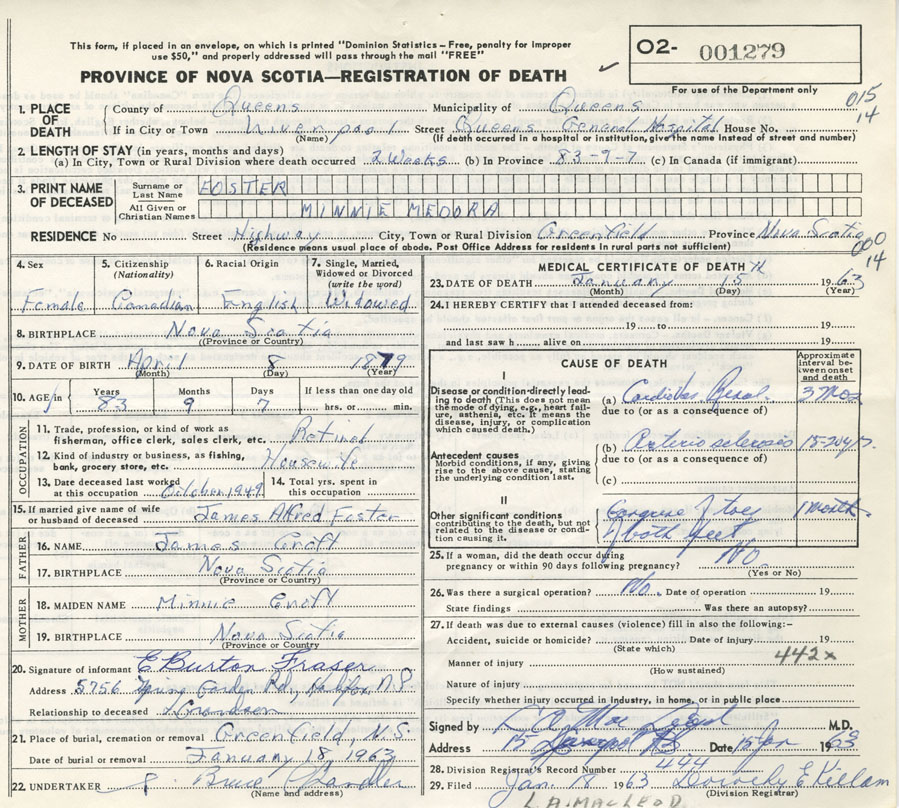 This form, if placed in an envelope, on which is printed "Dominion Statistics – Free, penalty for improper
use $50," and properly addressed will pass through the mail "FREE"
PROVINCE OF NOVA SCOTIA—REGISTRATION OF DEATH
O2- 001279
For use of the Department only
015
14
1. PLACE OF DEATH
County of Queens Municipality of Queens
If in City or Town Liverpool Street Queens General Hospital House No.
(Name) (If death occurred in a hospital or institution, give the name instead of street and number)
2. LENGTH OF STAY (in years, months and days)
(a) In City, Town or Rural Division where death occurred 2 Weeks (b) In Province 83-9-7 (c) In Canada (if immigrant)
3. PRINT NAME OF DECEASED
Surname or Last Name FOSTER
All Given or Christian Names MINNIE MEDORA
RESIDENCE No Street Highway City, Town or Rural Division Greenfield Province Nova Scotia
(Residence means usual place of abode. Post Office Address for residents in rural parts not sufficient)
000
14
4. Sex Female
5. Citizenship (Nationality) Canadian
6. Racial Origin English
7. Single, Married, Widowed or Divorced (write the word) Widowed
8. BIRTHPLACE Nova Scotia
(Province or Country)
9. DATE OF BIRTH April 8 1879
(Month) (Day) (Year)
10. AGE in Years 83 Months 9 Days 7 If less than one day old hrs. or min.
OCCUPATION
11. Trade, profession, or kind of work as fisherman, office clerk, sales clerk, etc. Retired
12. Kind of industry or business, as fishing, bank, grocery store, etc. Housewife
13. Date deceased last worked at this occupation October 1949 14. Total yrs. spent in this occupation
15. If married give name of wife or husband of deceased James Alfred Foster
FATHER
16. NAME James Croft
17. BIRTHPLACE Nova Scotia
(Province or Country)
MOTHER
18. MAIDEN NAME Minnie Croft
19. BIRTHPLACE Nova Scotia
(Province or Country)
20. Signature of informant E Burton Fraser
Address 5756 Spring Garden Rd, Halifax N S
Relationship to deceased Grandson
21. Place of burial, cremation or removal Greenfield, N.S.
Date of burial or removal January 18, 1963
22. UNDERTAKER Bruce Chandler
(Name and address)
MEDICAL CERTIFICATE OF DEATH
23. DATE OF DEATH January 15th 1963
(Month) (Day) (Year)
24. I HEREBY CERTIFY that I attended deceased from:
19 to 19
and last saw h alive on 19
CAUSE OF DEATH
Approximate interval between onset and death
I
Disease or condition directly leading to death (This does not mean the mode of dying, e.g., heart failure, asthenia, etc. It means the disease, injury, or complication which caused death.)
(a) Cardiovas Renal 3 Mos
due to (or as a consequence of)
Antecedent causes
Morbid conditions, if any, giving rise to the above cause, stating the underlying condition last.
(b) Arterio sclerosis 15-20 yrs
due to (or as a consequence of)
(c)
II
Other significant conditions contributing to the death, but not related to the disease or condition causing it:
Gangrene of toes 1 month
of both feet
25. If a woman, did the death occur during pregnancy or within 90 days following pregnancy? No
(Yes or No)
26. Was there a surgical operation? No. Date of operation 19
State findings Was there an autopsy?
27. If death was due to external causes (violence) fill in also the following:–
Accident, suicide or homicide? Date of injury 19
(State which)
442x
Manner of injury
(How sustained)
Nature of injury
Specify whether injury occurred in Industry, in home, or in public place
Signed by L A Mac Leod M.D.
Address Date 15 Jan 1963
28. Division Registrar's Record Number 444
29. Filed Jan. 1963 Dorothy E Killam
(Division Registrar)
L.A. MACLEOD